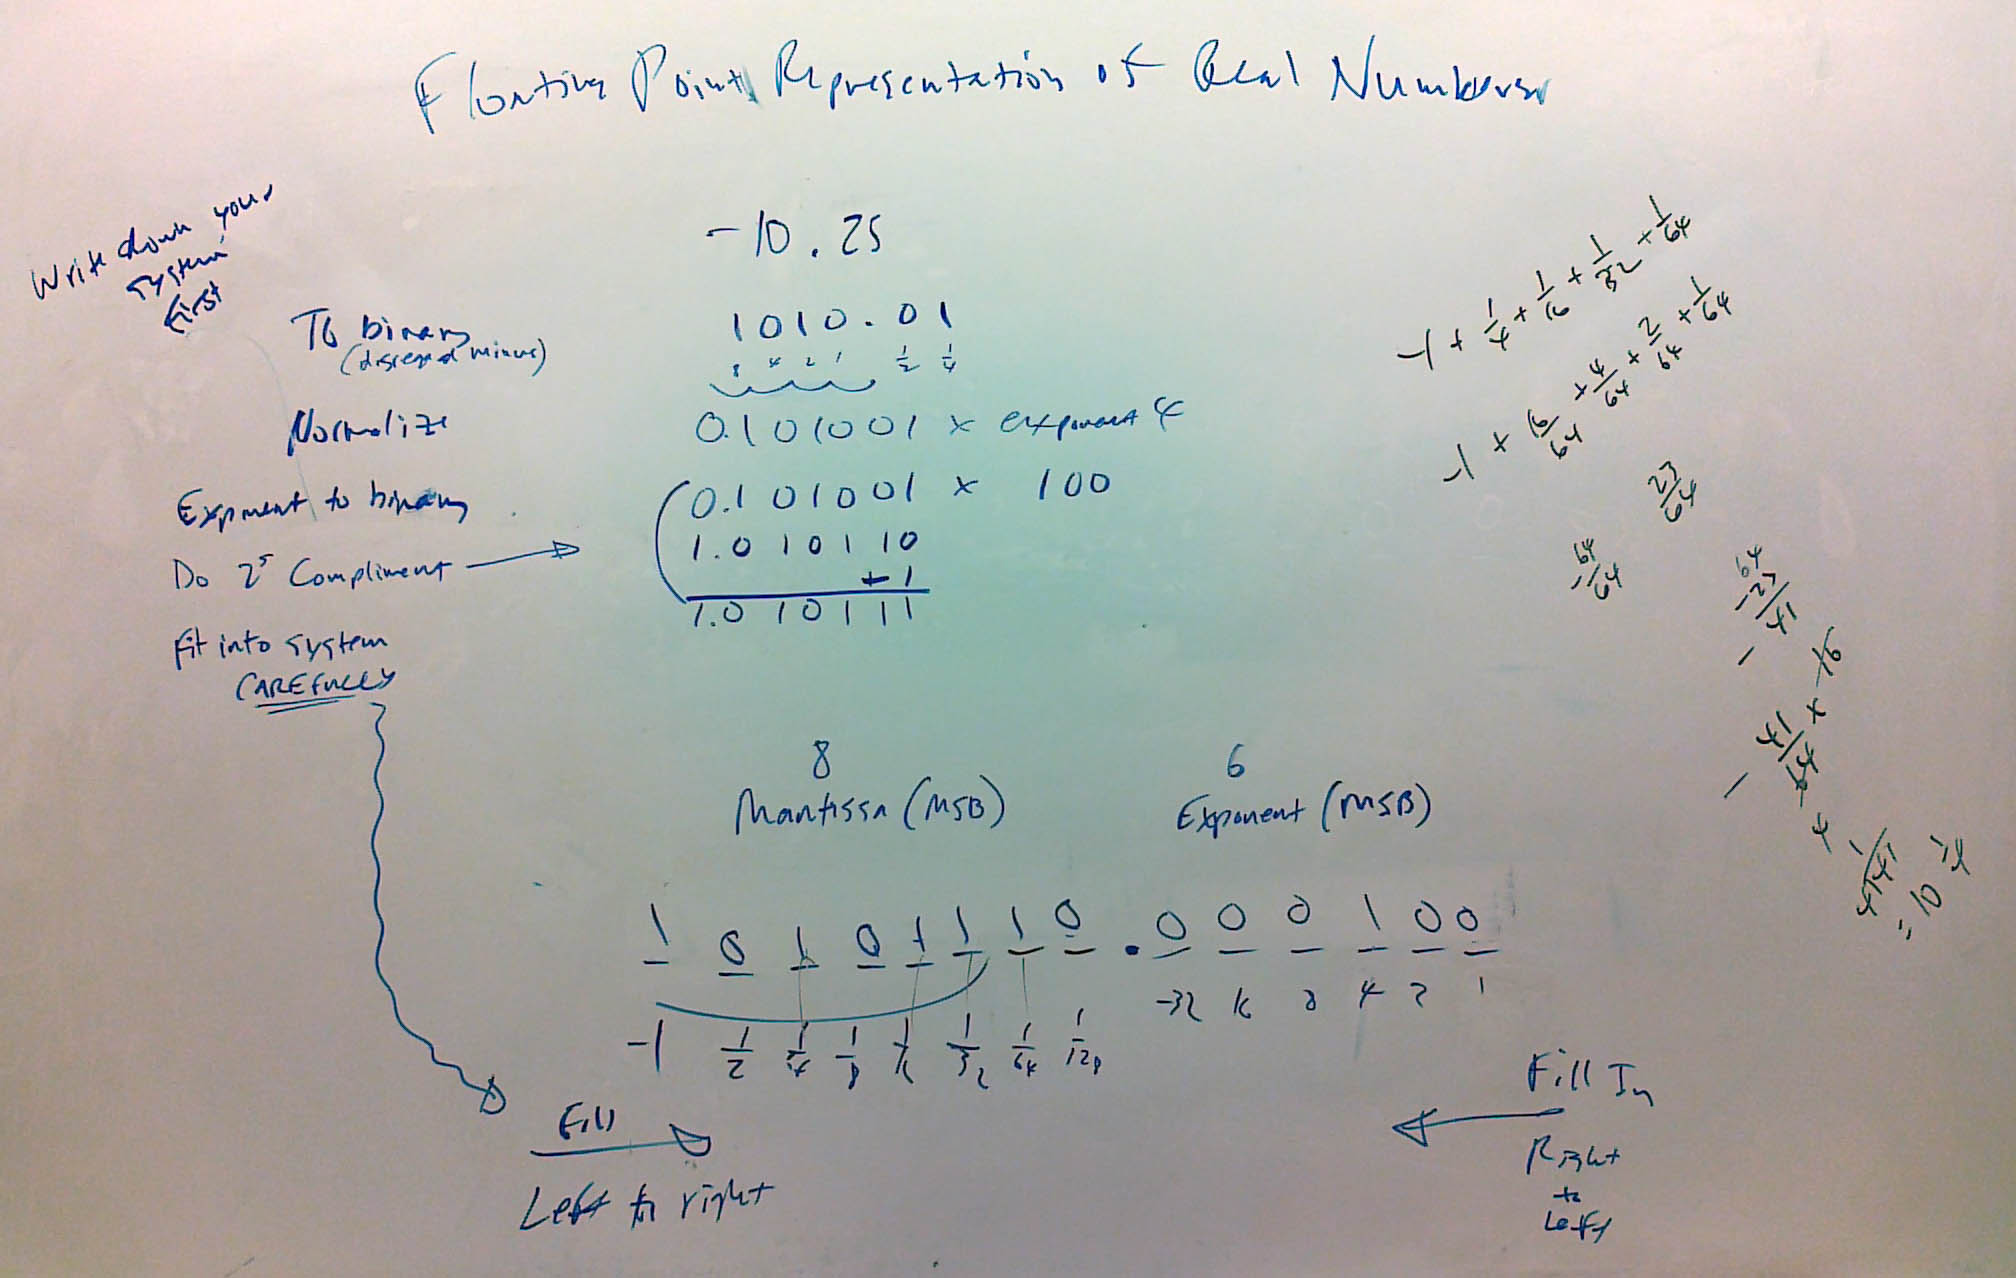 Floating Point Representation of Real Numbers
Write down your
system
first
-10.25
To binary
(disregard minus)
1010.01
8 4 2 1 1/2 1/4
Normalize
0.101001 x exponent 4
Exponent to binary
0.101001 x 100
Do 2s Compliment
1.010110
+1
1.010111
Fit into system
CAREFULLY
8
Mantissa (MSB)
6
Exponent (MSB)
1 0 1 0 1 1 1 0 . 0 0 0 1 0 0
-1 1/2 1/4 1/8 1/16 1/32 1/64 1/128
-32 16 8 4 2 1
Fill
Left to right
Fill In
Right
to
Left
-1 + 1/4 + 1/16 + 1/32 + 1/64
-1 + 16/64 + 4/64 + 2/64 + 1/64
23/64
-64/64
64
-23/
41
- 41/64 x 16
4
= 10 1/4